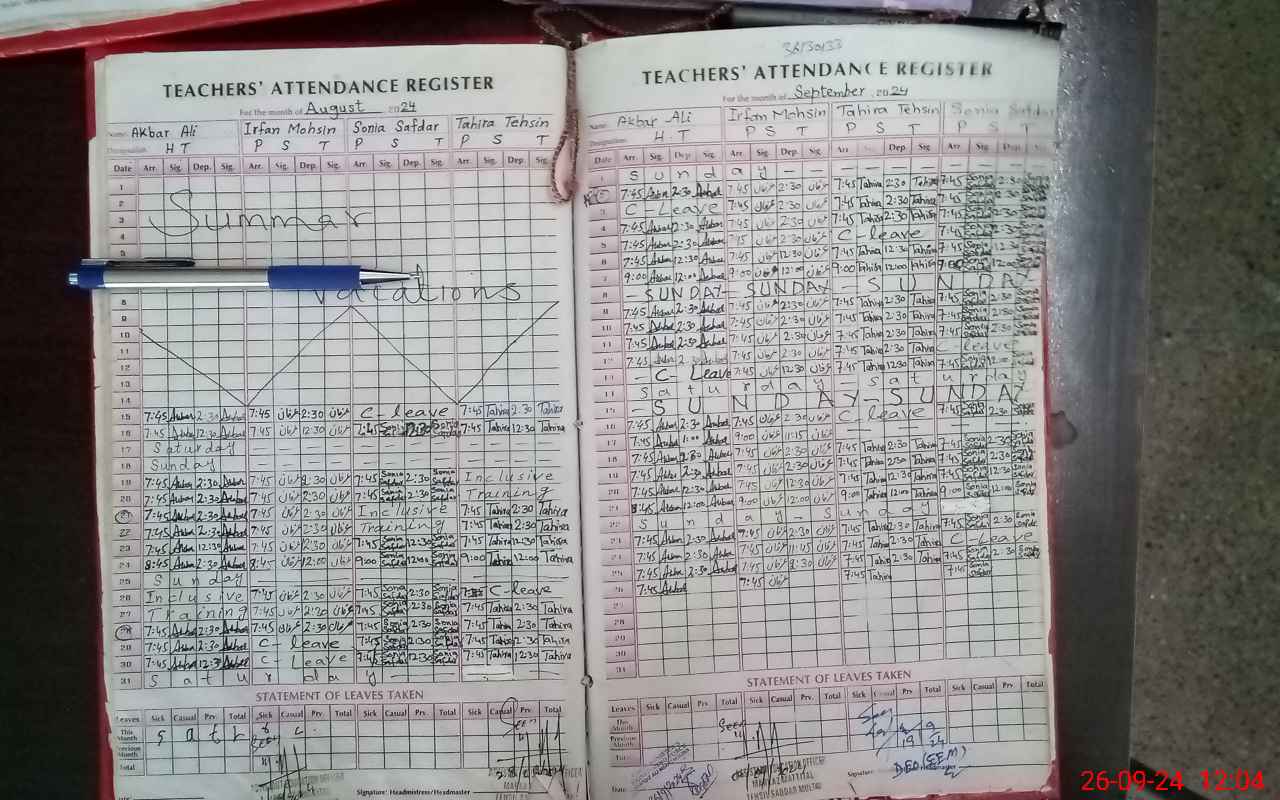 TEACHERS' ATTENDANCE REGISTER
For the month of August 2024
Name: Akbar Ali Irfan Mohsin Sonia Safdar Tahira Tehsin
Designation: H T P S T P S T P S T
Date Arr. Sig. Dep. Sig. Arr. Sig. Dep. Sig. Arr. Sig. Dep. Sig. Arr. Sig. Dep. Sig.
1
2
3 Summar
4
5
Vacations
8
9
10
11
12
13
14
15 7:45 Akbar 2:30 Akbar 7:45 عرفان 2:30 عرفان C-leave 7:45 Tahira 2:30 Tahira
16 7:45 Akbar 12:30 Akbar 7:45 عرفان 12:30 عرفان 7:45 Sonia Safdar 12:30 Sonia Safdar 7:45 Tahira 12:30 Tahira
17 Saturday
18 Sunday
19 7:45 Akbar 2:30 Akbar 7:45 عرفان 2:30 عرفان 7:45 Sonia Safdar 2:30 Sonia Safdar Inclusive
20 7:45 Akbar 2:30 Akbar 7:45 عرفان 2:30 عرفان 7:45 Sonia Safdar 2:30 Sonia Safdar Training
21 7:45 Akbar 2:30 Akbar 7:45 عرفان 2:30 عرفان Inclusive 7:45 Tahira 2:30 Tahira
22 7:45 Akbar 2:30 Akbar 7:45 عرفان 2:30 عرفان Training 7:45 Tahira 2:30 Tahira
23 7:45 Akbar 12:30 Akbar 7:45 عرفان 12:30 عرفان 7:45 Sonia Safdar 12:30 Sonia Safdar 7:45 Tahira 12:30 Tahira
24 8:45 Akbar 12:00 Akbar 8:45 عرفان 12:00 عرفان 9:00 Sonia Safdar 12:00 Sonia Safdar 9:00 Tahira 12:00 Tahira
25 Sunday
26 Inclusive 7:45 عرفان 2:30 عرفان 7:45 Sonia Safdar 2:30 Sonia Safdar C-leave
27 Training 7:45 عرفان 2:30 عرفان 7:45 Sonia Safdar 2:30 Sonia Safdar 7:45 Tahira 2:30 Tahira
28 7:45 Akbar 2:30 Akbar 7:45 عرفان 2:30 عرفان 7:45 Sonia Safdar 2:30 Sonia Safdar 7:45 Tahira 2:30 Tahira
29 7:45 Akbar 2:30 Akbar C-leave 7:45 Sonia Safdar 2:30 Sonia Safdar 7:45 Tahira 2:30 Tahira
30 7:45 Akbar 12:30 Akbar C-Leave 7:45 Sonia Safdar 12:30 Sonia Safdar 7:45 Tahira 12:30 Tahira
31 Saturday
STATEMENT OF LEAVES TAKEN
Leaves Sick Casual Prv. Total Sick Casual Prv. Total Sick Casual Prv. Total Sick Casual Prv. Total
This Month
Previous Month
Total
Seen
Signature: Headmistress/Headmaster
36130133
TEACHERS' ATTENDANCE REGISTER
For the month of September 2024
Name: Akbar Ali Irfan Mohsin Tahira Tehsin Sonia Safdar
Designation: H T P S T P S T P S T
Date Arr. Sig. Dep. Sig. Arr. Sig. Dep. Sig. Arr. Sig. Dep. Sig. Arr. Sig. Dep. Sig.
1 Sunday
7:45 Akbar 2:30 Akbar 7:45 عرفان 2:30 عرفان 7:45 Tahira 2:30 Tahira 7:45 Sonia Safdar 2:30 Sonia Safdar
3 C-Leave 7:45 عرفان 2:30 عرفان 7:45 Tahira 2:30 Tahira 7:45
4 7:45 Akbar 2:30 Akbar 7:45 عرفان 2:30 عرفان 7:45 Tahira 2:30 Tahira 7:45
5 7:45 Akbar 2:30 Akbar عرفان 2:30 عرفان C-leave 7:45
6 7:45 Akbar 12:30 Akbar 7:45 عرفان 12:30 عرفان 7:45 Tahira 12:30 Tahira 7:45
7 9:00 Akbar 12:00 Akbar 9:00 عرفان 12:00 عرفان 9:00 Tahira 12:00 Tahira
8 SUNDAY SUNDAY SUNDAY
7:45 Akbar 2:30 Akbar 7:45 عرفان 2:30 عرفان 7:45 Tahira 2:30 Tahira 7:45
10 7:45 Akbar 2:30 Akbar 7:45 عرفان 2:30 عرفان 7:45 Tahira 2:30 Tahira 7:45
11 7:45 Akbar 2:30 Akbar 7:45 عرفان 2:30 عرفان 7:45 Tahira 2:30 Tahira 7:45
12 7:45 Akbar 2:30 Akbar 7:45 عرفان 2:30 عرفان 7:45 Tahira 2:30 Tahira C-leave
13 C-Leave 7:45 عرفان 12:30 عرفان 7:45 Tahira 12:30 Tahira 7:45
14 Saturday Saturday
15 SUNDAY SUNDAY
16 7:45 Akbar 2:30 Akbar 7:45 عرفان 2:30 عرفان C leave 7:45
17 7:45 Akbar 1:00 Akbar 9:00 عرفان 11:15 عرفان
18 7:45 Akbar 2:30 Akbar 7:45 عرفان 2:30 عرفان 7:45 Tahira 2:30 Tahira 7:45
19 7:45 Akbar 2:30 Akbar 7:45 عرفان 2:30 عرفان 7:45 Tahira 2:30 Tahira 7:45
20 7:45 Akbar 12:30 Akbar 7:45 عرفان 12:30 عرفان 7:45 Tahira 12:30 Tahira 7:45
21 Akbar 12:00 Akbar 9:00 عرفان 12:00 عرفان 9:00 Tahira 12:00 Tahira 9:00
22 Sunday - Sunday
7:45 Akbar 2:30 Akbar 7:45 عرفان 2:30 عرفان 7:45 Tahira 2:30 Tahira 7:45 Sonia Safdar 2:30 Sonia Safdar
24 7:45 Akbar 2:30 Akbar 7:45 عرفان 11:45 عرفان 7:45 Tahira 2:30 Tahira C-Leave
25 7:45 Akbar 2:30 Akbar 7:45 عرفان 2:30 عرفان 7:45 Tahira 2:30 Tahira 7:45
26 7:45 Akbar 7:45 عرفان 7:45 Tahira 7:45 Sonia Safdar
27
28
29
30
31
STATEMENT OF LEAVES TAKEN
Leaves Sick Casual Prv. Total Sick Casual Prv. Total Sick Casual Prv. Total Sick Casual Prv. Total
This Month
Previous Month
Seen
DEO (EEM)
26-09-24 12:04